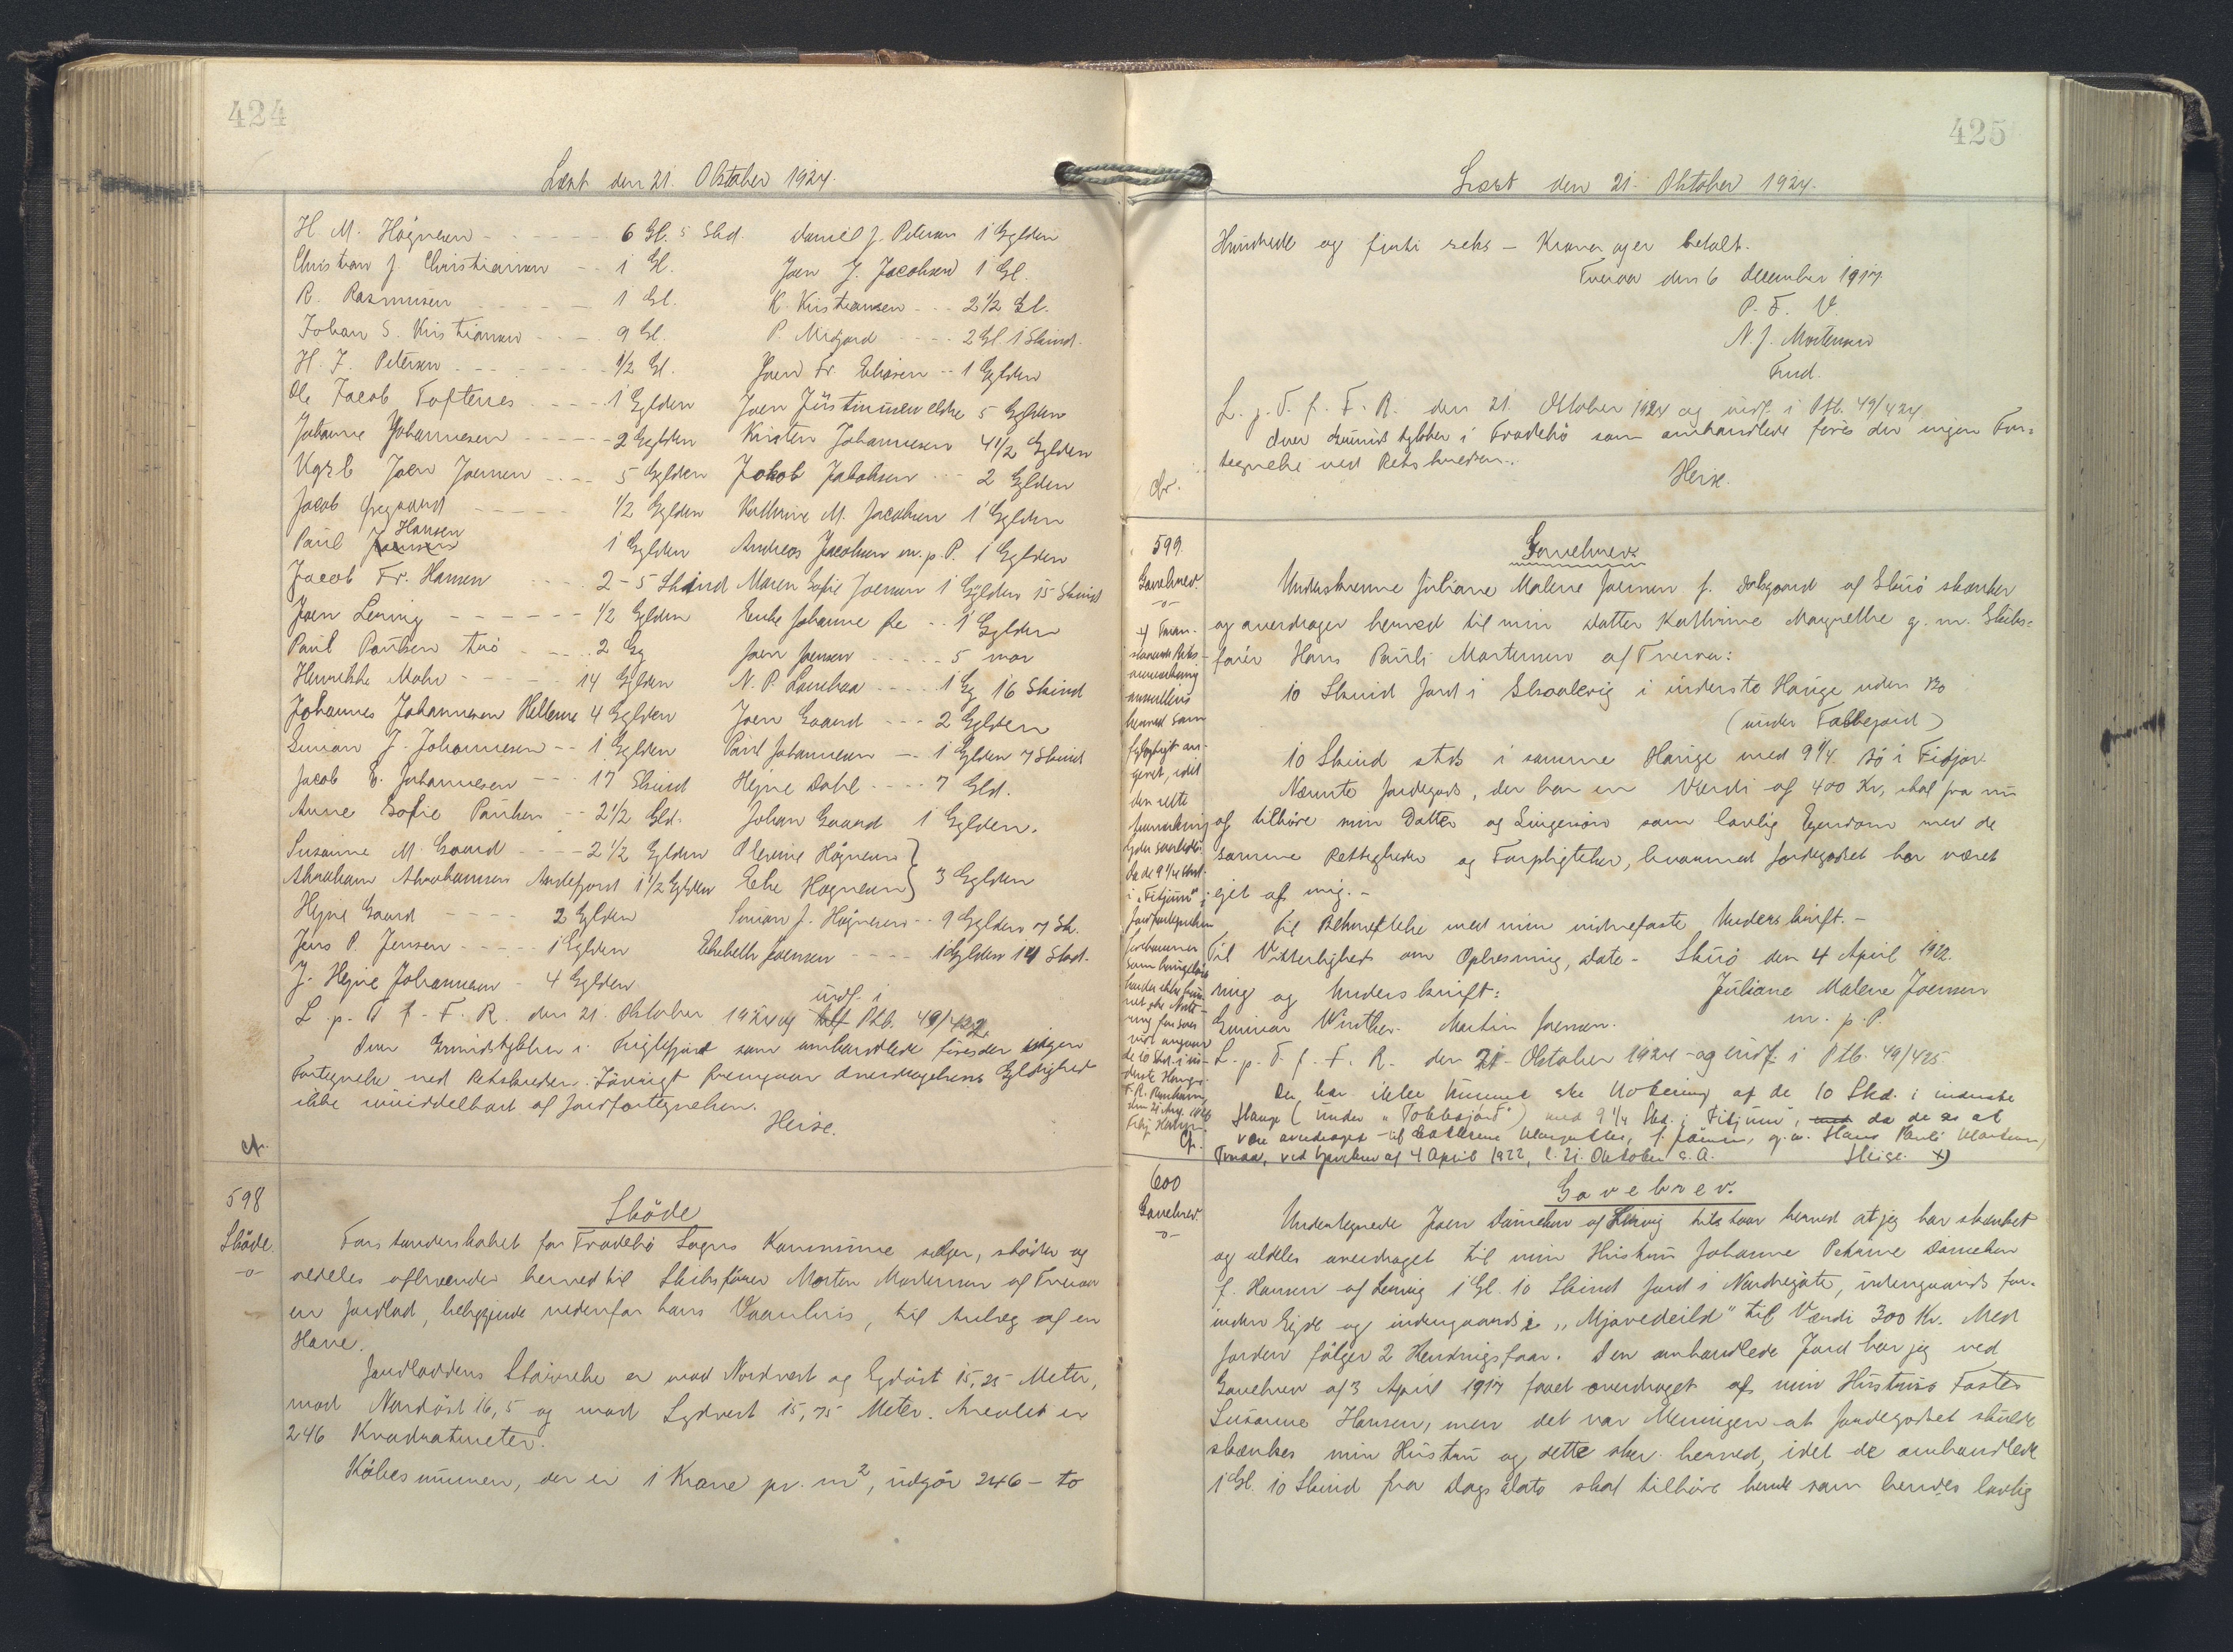 424
Læst den 21. Oktober 1924.
H. M. Högnesen - - - - 6 Gl. 5 Skd. Daniel J. Petersen 1 Gylden
Christian J. Christiansen - - 1 Gl. Joen J. Jacobsen 1 Gl.
R. Rasmussen - - - - 1 Gl. K. Kristiansen - - - 2 1/2 Gl.
Johan S. Kristiansen - - - 9 Gl. P. Midjord - - - - 2 Gl. 1 Skind.
H. J. Petersen - - - - - 1/2 Gl. Joen Fr. Eliasen - - 1 Gylden
Ole Jacob Toftenes - - - - 1 Gylden Joen Justinussen ældre 5 Gylden
Johanne Johannesen - - - - - 2 Gylden Kirsten Johannesen 4 1/2 Gylden
Kgsb. Joen Joensen - - - - 5 Gylden Jakob Jakobsen - - - 2 Gylden
Jacob Öregaard - - - - - 1/2 Gylden Kathrine M. Jacobsen 1 Gylden
Hansen
Paul Joensen 1 Gylden Andreas Jacobsen m. p. P. 1 Gylden
Jacob Fr. Hansen - - - - 2 - 5 Skind Maren Sofie Joensen 1 Gylden 15 Skind
Joen Lervig - - - - - - 1/2 Gylden Enke Johanne - - 1 Gylden
Paul Poulsen - - - - 2 Gy Joen Joensen - - - - - 5
Henrikke Mohr - - - - - 14 Gylden N. P. - - - - 1 Gy 16 Skind
Johannes Johannesen Hellerne 4 Gylden Joen Gaard - - - 2 Gylden
Simian J. Johannesen - - 1 Gylden Paul Johannesen - - 1 Gylden 7 Skind
Jacob E. Johannesen - - - 17 Skind Hejne Dahl - - - - 7 Gld.
Anne Sofie Poulsen - - 2 1/2 Gld. Johan Gaard 1 Gylden.
Susanne M. Gaard - - - - 2 1/2 Gylden Olevine Högnesen
Abraham Abrahamsen Andefjord 1 1/2 Gylden Elie Högnesen } 3 Gylden
Hejne Gaard - - - - 2 Gylden Simon J. Högnesen - - 9 Gylden 7 Sk.
Jens P. Jensen - - - - - 1 Gylden Elsebeth Joensen - - - - 1 Gylden 14 Skd.
J. Hejne Johannesen - 4 Gylden
indf. i
L. p. T. f. F. R. den 21. Oktober 1924 og Ptb. 49/422.
Over Grundstykker i Fuglefjord som omhandlede föres der ingen
Fortegnelse ved Retskredsen. Iövrigt fremgaar Overdragelsens Gyldighed
ikke umiddelbart af Jordfortegnelsen.
Heise.
cfr.
598
Sköde.
-o-
Sköde
Forstanderskabet for Frodebö Sogns Kommune sælger, sköder og
aldeles afhænder herved til Skibsförer Morten Mortensen af Tveraa
en Jordlod, beliggende nedenfor hans Vaanhus, til Anlæg af en
Have.
Jordloddens Störrelse er mod Nordvest og Sydöst 15,25 Meter,
mod Nordöst 16,5 og mod Sydvest 15,75 Meter. Arealet er
246 Kvadratmeter.
Köbesummen, der er 1 Krone pr. m2, udgör 246 - to
425
Læst den 21. Oktober 1924.
Hundrede og firti seks - Kroner og er betalt.
Tveraa den 6 December 1917
P. F. V.
N. J. Mortensen
Fmd.
L. p. T. f. F. R. den 21. Oktober 1924 og indf. i Ptb. 49/424
Over Grundstykker i Frodebö som omhandlede föres der ingen For-
tegnelse ved Retskredsen.
Heise.
cfr.
599.
Gavebrev.
-o-
x) Foran-
staaende Rets-
anmærkning
annulleres
herved som
fejlagtigt an-
givet, idet
den rette
Anmærkning
lyder saaledes:
da de 9 1/4 Skd.
i "Fitjum" i
Jordfortegnelsen
Gavebrev.
Undertegnede Juliane Malene Joensen f. Dalsgaard af Skuö skænker
og overdrager herved til min Datter Kathrine Margrethe g. m. Skibs-
förer Hans Pauli Mortensen af Tveraa:
10 Skind Jord i Skaalevig i inderste Hauge uden Bö
(under Takkegjord)
10 Skind i samme Hauge med 9 1/4. Bö i Fidjar.
Nævnte Jordegods, der har en Værdi af 400 Kr., skal fra nu
af tilhöre min Datter og Svigersön som lovlig Ejendom med de
samme Rettigheder og Forpligtelser, hvormed Jordegodset har været
ejet af mig. -
Til Bekræftelse med min vidnefaste Underskrift. -
Til Vitterlighed om Oplæsning, Date- Skuö den 4 April 1922.
ring og Underskrift: Juliane Malene Joensen
Gunnar Winther. Martin Joensen. m. p. P.
L. p. T. f. F. R. den 21. Oktober 1924 og indf. i Ptb. 49/425.
Der har ikke kunnet ske Notering af de 10 Skd. i inderste
Hauge (under "Tokkagjord") med 9 1/4 Skd. i Fitjum, da de er at
være overdraget til Cathrine Margrethe, f. Joensen, g. m. Hans Pauli Mortensen,
Tveraa, ved Gavebrev af 4 April 1922, l. 21. Oktober s. A. Heise. x)
cfr.
600
Gavebrev.
-o-
Gavebrev.
Undertegnede Joen Danielsen af Lervig tilstaar herved at jeg har skænket
og aldeles overdraget til min Hustru Johanne Petrine Danielsen
f. Hansen af Lervig 1 Gl. 10 Skind Jord i Nordregöte, indengaards for-
uden Ejde og indengaards i "Mjavedeild" til Værdi 300 Kr. Med
Jorden fölger 2 Hendrigsfaar. Den omhandlede Jord har jeg ved
Gavebrev af 3 April 1917 faaet overdraget af min Hustrus Faster
Susanne Hansen, men det var Meningen at Jordegodset skulde
skænkes min Hustru og dette sker herved, idet de omhandlede
1 Gl. 10 Skind fra Dags Dato skal tilhöre hende som hendes lovlig